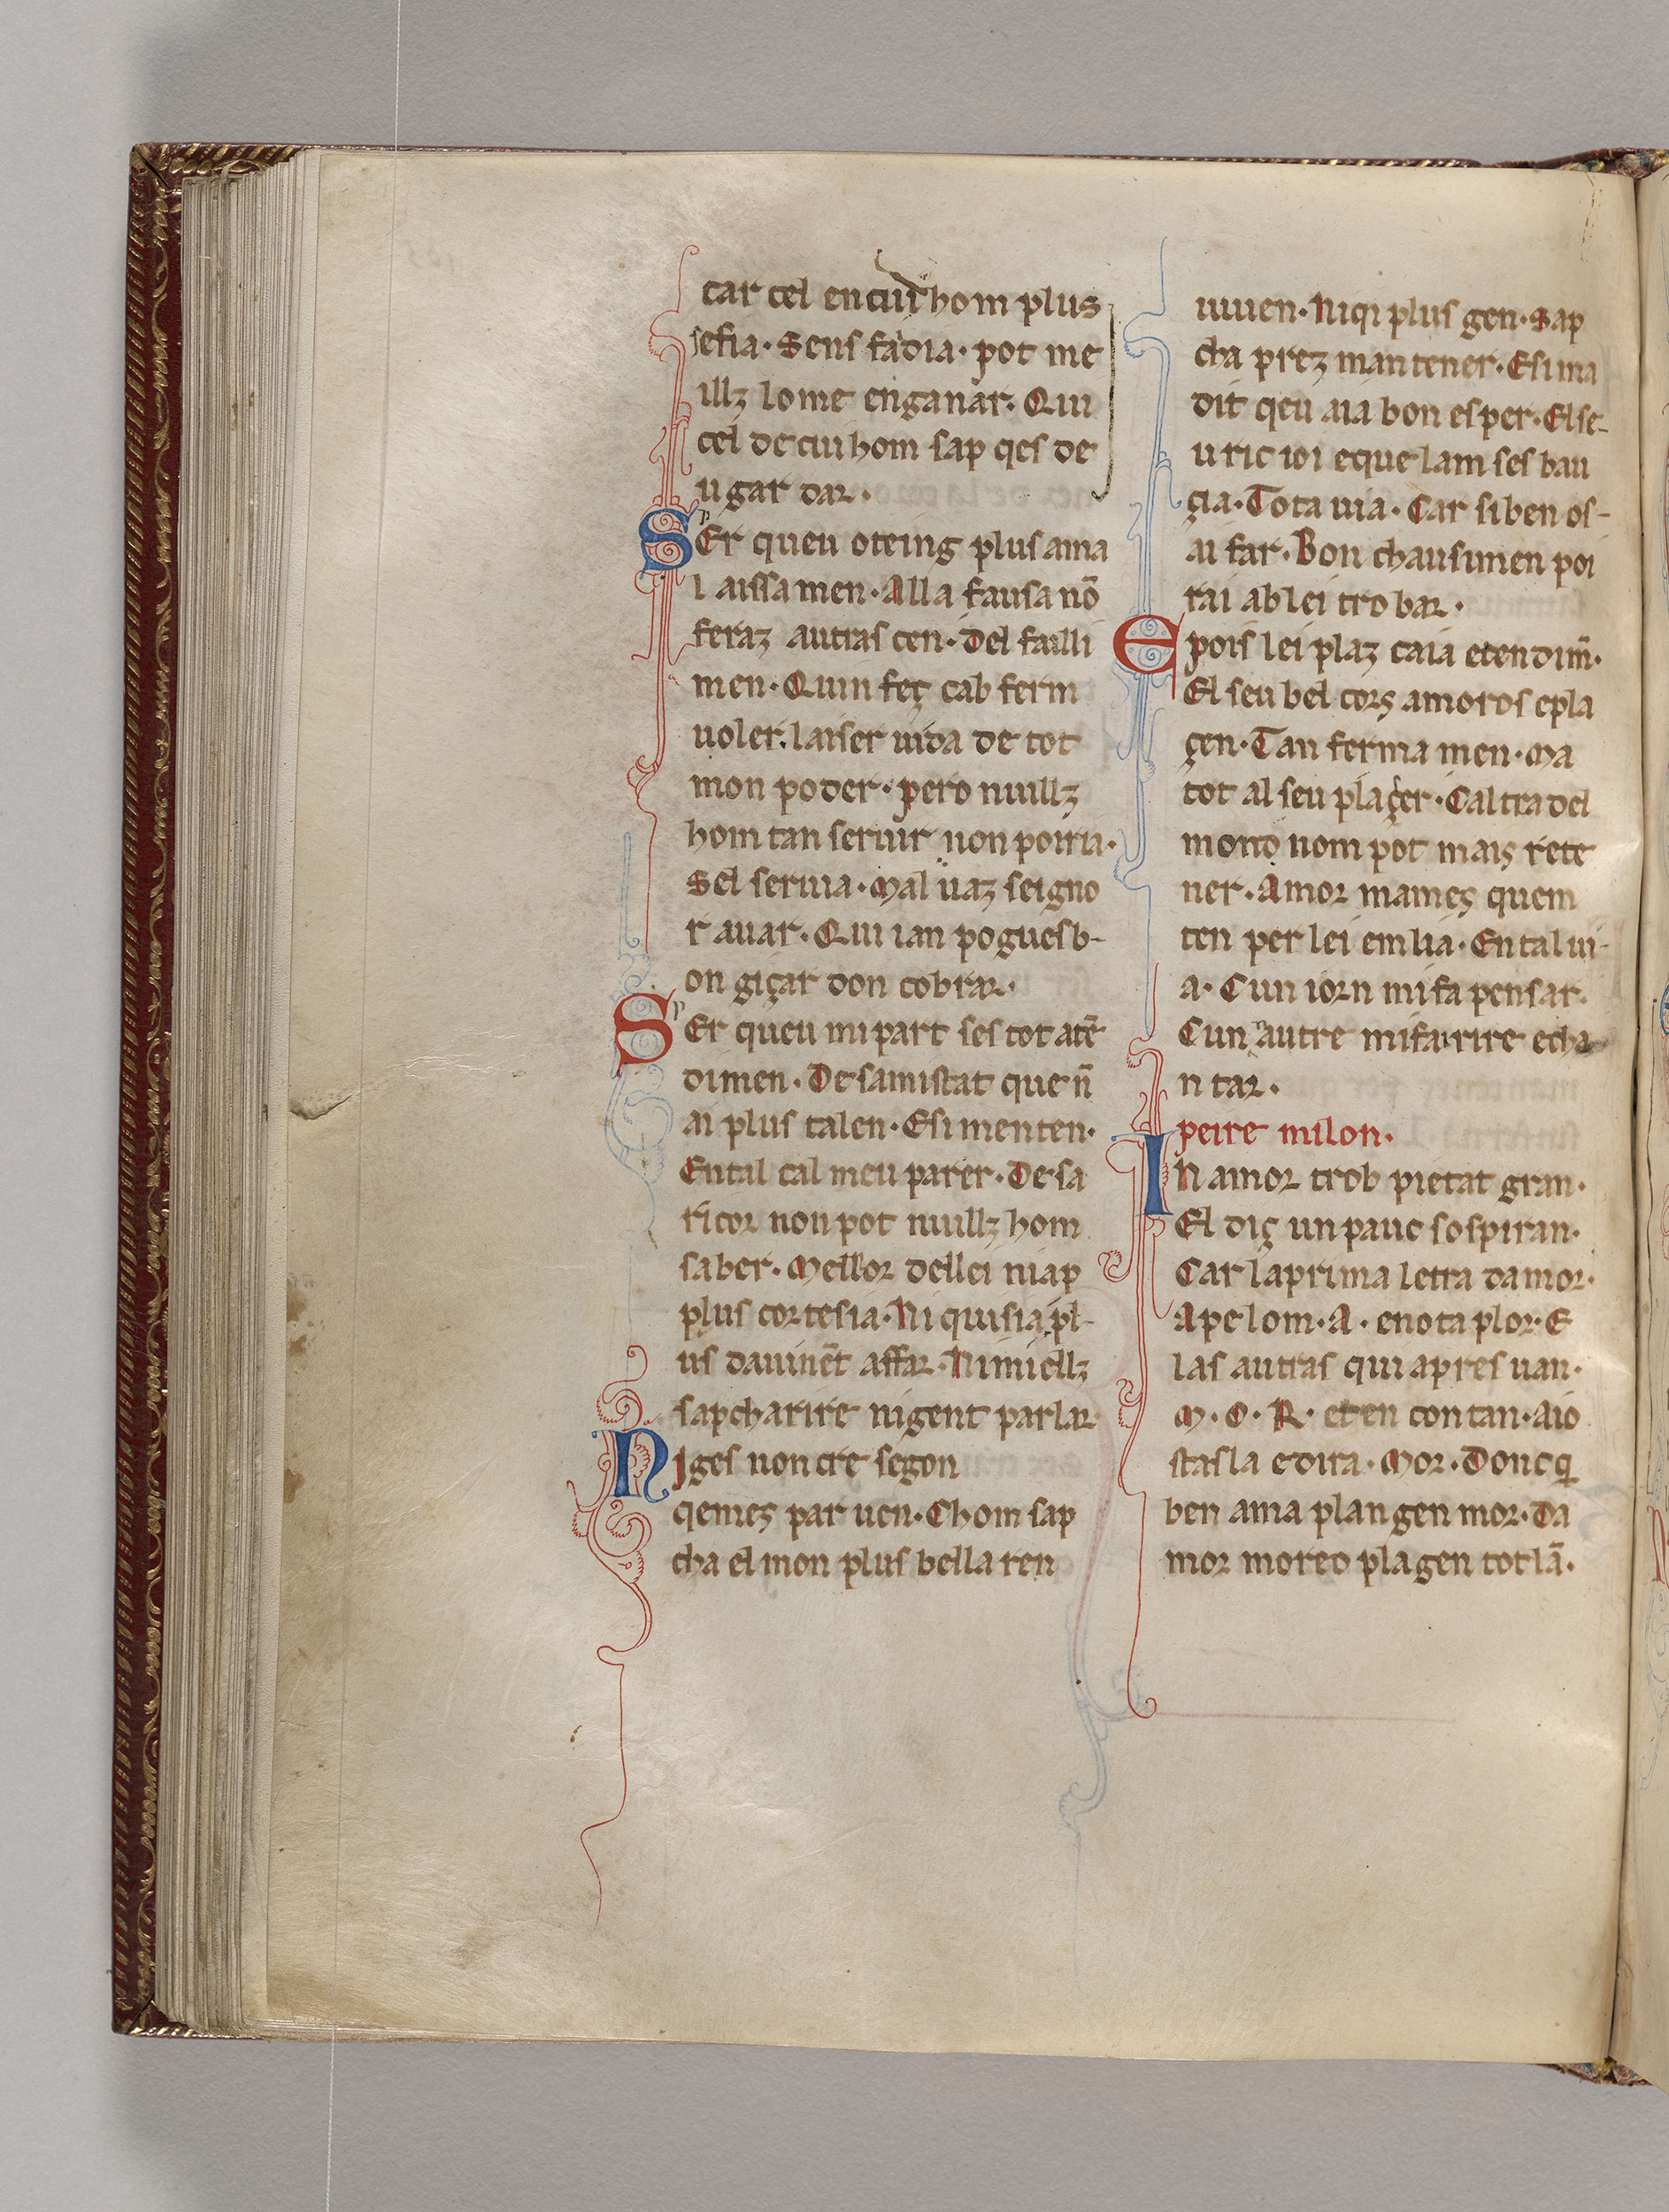 car cel en cui hom plus
sefia· Sens fadia· pot me
illz lome enganar· Qui
cel de cui hom sap qes de
ugar dar·
SEr queu oteing plus ama
l aissamen· Alla fausa nō
feraz autras cen· Del failli
men· Quin feç cab ferm
uoler. laiser uida de tot
mon poder· pero nuillz
hom tan seruir non poiria·
Sel seruia· Mal uaz seigno
r auar· Qui ian pogues b-
on giçar don cobrar·
SEr queu mi part ses tot atē
dimen· De samistat que n̄
ai plus talen· Esi menten·
Ental cal meu parer· De sa
ricor non pot nuillz hom
saber· Mellor dellei niap
plus cortesia· Ni qui sia pl-
us dauinēt affar· Nimiellz
sapcharire nigent parlar
Niges non cre segon
qemeç par uen· Chom sap
cha el mon plus bella ren
uiuen· Niqi plus gen· Sap
cha prez mantener· Esima
dit qeu aia bon esper· El se-
u ric ioi eque lam ses bau
çia· Tota uia· Car siben os-
ai far· Bon chausimen poi
rai ab lei trobar·
E pois lei plaz caia etendim̄·
El seu bel cors amoros epla
çen· Tan ferma men· Ma
tot al seu plaçer· Caltra del
mond nom pot mais rete
ner· Amor mameç quem
ten per lei em lia· En tal ui-
a· Cun iorn mi fa pensar·
Cun autre mi fai rire echa
n tar·
peire milon·
In amor trob pietat gran·
El diç un pauc sospiran·
Car la prima letra damor·
Apelom· A· enota plor· E
las autras qui apres uan·
M· O· R· et en contan· Aio
stas la edira· Mor· Donc q
ben ama plangen mor· Da
mor moreo plagen tot lā·